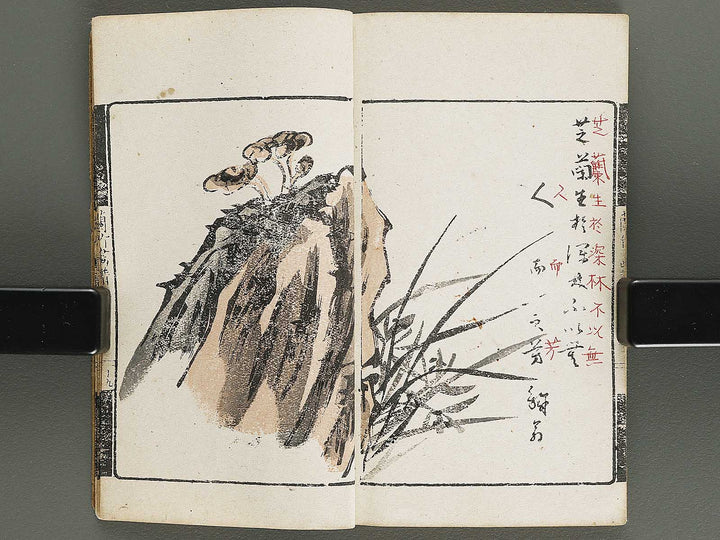 芝蘭生於深林不以無
芝蘭生於深林不以無
人而芳
人而不芳